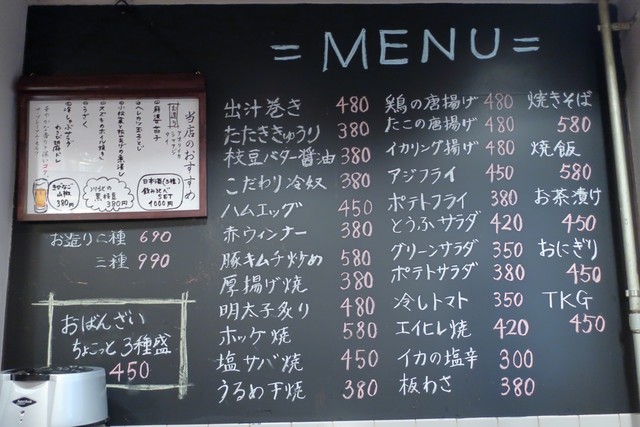 = MENU =
出汁巻き 480
たたききゅうり 380
枝豆バター醤油 380
こだわり冷奴 380
ハムエッグ 450
赤ウィンナー 380
豚キムチ炒め 580
厚揚げ焼 380
明太子炙り 480
ホッケ焼 580
塩サバ焼 450
うるめ干焼 380
鶏の唐揚げ 480
たこの唐揚げ 480
イカリング揚げ 480
アジフライ 450
ポテトフライ 380
とうふサラダ 420
グリーンサラダ 350
ポテサラダ 380
冷しトマト 350
エイヒレ焼 420
イカの塩辛 300
板わさ 380
焼きそば
580
焼飯
580
お茶漬け
450
おにぎり
450
TKG
450
当店のおすすめ
お造り
うざく
日本酒(3種)
飲み比べ
SET
1000円
黒枝豆
380円
380円
お造り二種 690
三種 990
おばんざい
ちょこっと3種盛
450